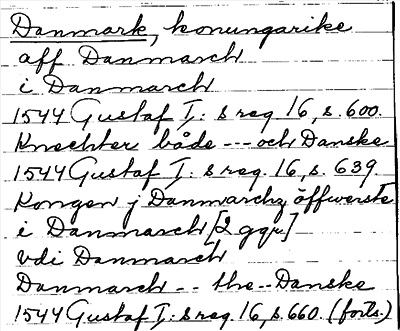 Danmark, konungarike
aff Danmarch
i Danmarch
1544 Gustaf I: s reg 16, s. 600.
Knechter både --- och Danske
1544 Gustaf I: s reg. 16, s. 639.
Kongen j Danmarchz öffwerste
i Danmarch [2 ggr]
vdi Danmarch
Danmarch -- the -- Danske
1544 Gustaf I: s reg. 16, s. 660. (forts.)